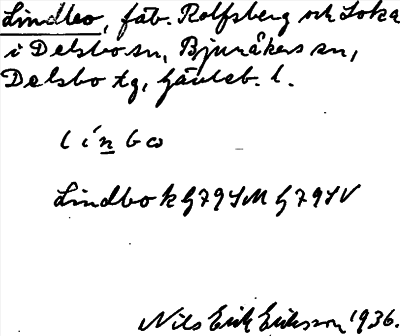 Lindbo, fäb. Rolfsberg och Loka
i Delsbo sn, Bjuråkers sn,
Delsbo tg, Gävleb. l.
lí́n̲bω
Lindbo k G79SM G79SV
Nils Erik Eriksson 1936.